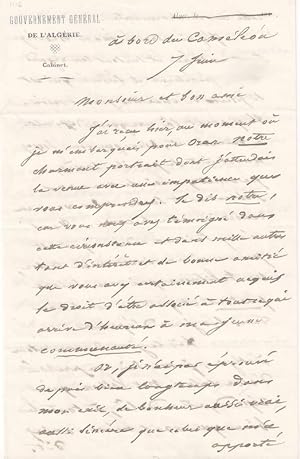 GOUVERNEMENT GÉNÉRAL
DE L'ALGÉRIE
Cabinet.
à bord du
7 Juin
Monsieur et bon ami
J'ai reçu hier au moment où
je m'embarquais pour Oran notre
charmant portrait dont j'attendais
la venue avec une impatience que
vous comprendrez. Je dis notre!
car vous nous avez témoigné dans
cette circonstance et dans mille autres
tant d'intérêt et de bonne amitié
que vous avez certainement acquis
le droit d'être associé à tout ce qui
arrive d'heureux à ma jeune
communauté!
Or, je n'ai pas éprouvé
depuis bien longtemps dans
mon exil, de bonheur aussi vrai,
aussi sincère que celui que m'a
apporté